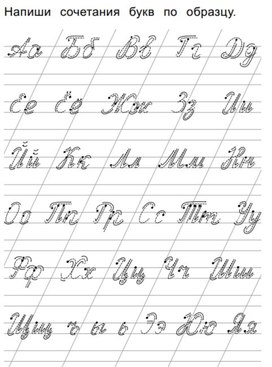 Напиши сочетания букв по образцу.
Аа Бб Вв Гг Дд
Ее Ёё Жж Зз Ии
Йй Кк Лл Мм Нн
Оо Пп Рр Сс Тт Уу
Фф Хх Цц Чч Шш
Щщ ъ ы ь Ээ Юю Яя